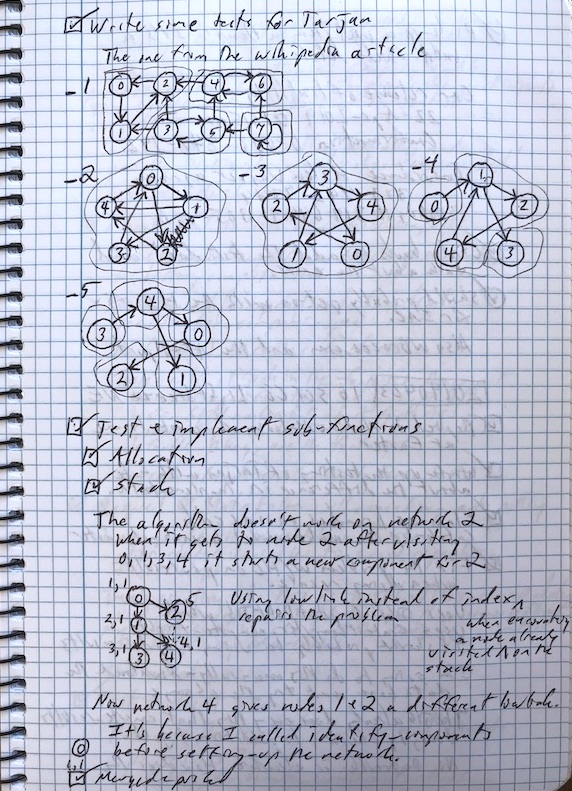 Write some tests for Tarjan
The one from the wikipedia article
-1 0 2 4 6
1 3 5 7
-2 0 -3 3 -4 1
4 1 2 4 0 2
3 2 1 0 4 3
-5 4
3 0
2 1
Test & implement sub-functions
Allocation
Stack
The algorithm doesn't work on network 2
when it gets to node 2 after visiting
0, 1, 3, 4 it starts a new component for 2
1,1 0 2 5 Using lowlink instead of index ^
repairs the problem
when encountering
a node already
visited & on the
stack
2,1 1 4,1
3,1 3 4
Now network 4 gives nodes 1 & 2 a different lowlink.
It's because I called identify-components
before setting-up the network.
0
1,1
Merged